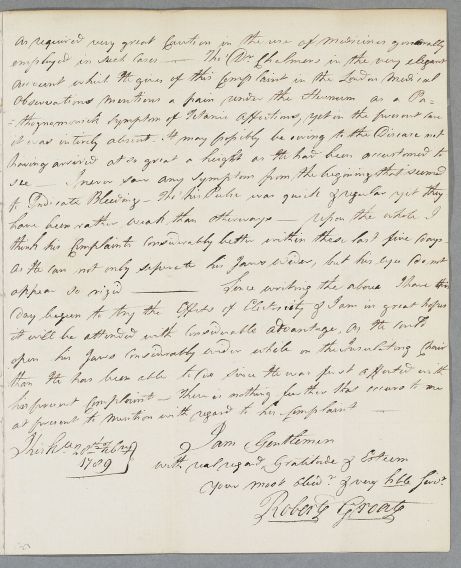 as required very great Caution in the use of Medicines generally
employed in such Cases — Tho' Dr. Chalmers in the very elegant
account which He gives of this Complaint in the London Medical
Observations mentions a pain under the Sternum as a Pa-
-thognomonick Symptom of Tetanic Affections, yet in the present case
it was intirely absent. It may possibly be owing to the Disease not
having arrived at so great a height as He had been accustomed to
see — I never saw any Symptom from the begining that seemed
to Indicate Bleeding — Tho' his Pulse was quick & regular yet they
have been rather weak than otherways — Upon the whole I
think his Complaints Considerably better within these last five days
as He can not only seperate his Jaws wider, but his eyes do not
appear so rigid — Since writing the above I have this
day begun to try the Effects of Electricity & I am in great hopes
it will be attended with Considerable advantage, as He could
open his Jaws Considerably wider while on the Insulating Chair
than He has been able to do since He was first affected with
his present Complaint — there is nothing further that occurs to me
at present to mention with regard to his Complaint —
I am Gentlemen
with real regard, Gratitude & Esteem
Your most Obedt. & very hble Servt.
Robert Groat
1789